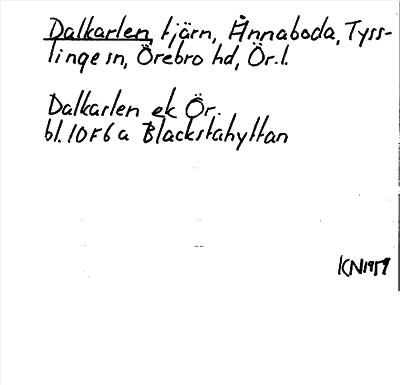 Dalkarlen, tjärn, Ånnaboda, Tyss-
linge sn, Örebro hd, Ör.l.
Dalkarlen ek Ör.
bl.10F6a Blackstahyttan
KN1979